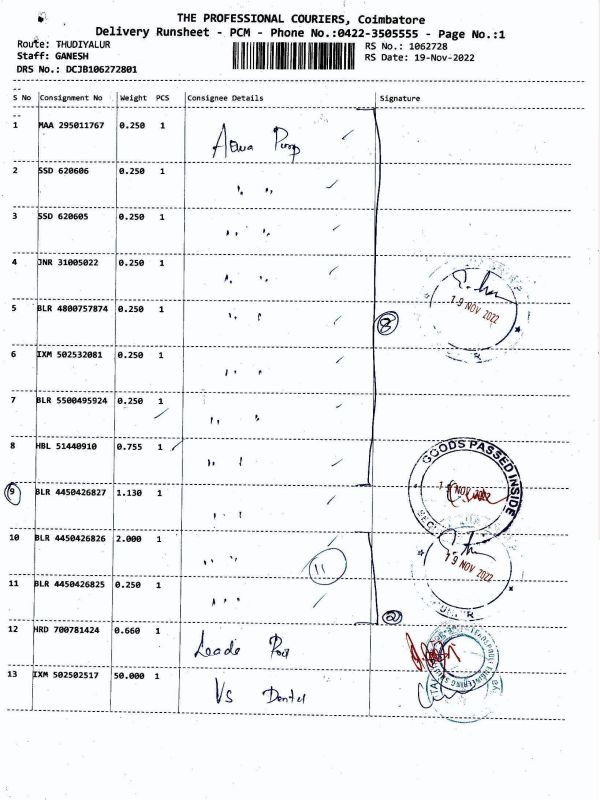 THE PROFESSIONAL COURIERS, Coimbatore
Delivery Runsheet - PCM - Phone No.:0422-3505555 - Page No.:1
Route: THUDIYALUR RS No.: 1062728
Staff: GANESH RS Date: 19-Nov-2022
DRS No.: DCJB106272801
S No Consignment No Weight PCS Consignee Details Signature
1 MAA 295011767 0.250 1
2 SSD 620606 0.250 1 " "
3 SSD 620605 0.250 1 " "
4 JNR 31005022 0.250 1 " "
19 NOV 2022
5 BLR 4800757874 0.250 1 " " 8
6 IXM 502532081 0.250 1 " "
7 BLR 5500495924 0.250 1 " "
8 HBL 51440910 0.755 1 " "
GOODS PASSED INSIDE
9 BLR 4450426827 1.130 1 " "
10 BLR 4450426826 2.000 1 " " 11
19 NOV 2022
11 BLR 4450426825 0.250 1 " " 2
12 HRD 700781424 0.660 1
13 IXM 502502517 50.000 1 VS Dental